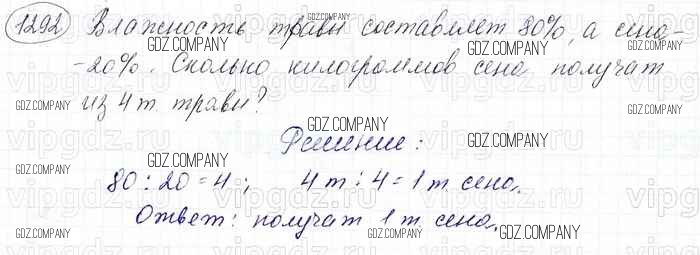 1292 Влажность травы составляет 80%, а сена -
GDZ.COMPANY GDZ.COMPANY GDZ.COMPANY
- 20%. Сколько килограммов сена получат
из 4 т. травы?
GDZ.COMPANY
Решение:
GDZ.COMPANY GDZ.COMPANY
80 : 20 = 4; 4 т : 4 = 1 т сена.
Ответ: получат 1 т сена.
GDZ.COMPANY GDZ.COMPANY
vipgdz.ru vipgdz.ru vipgdz.ru